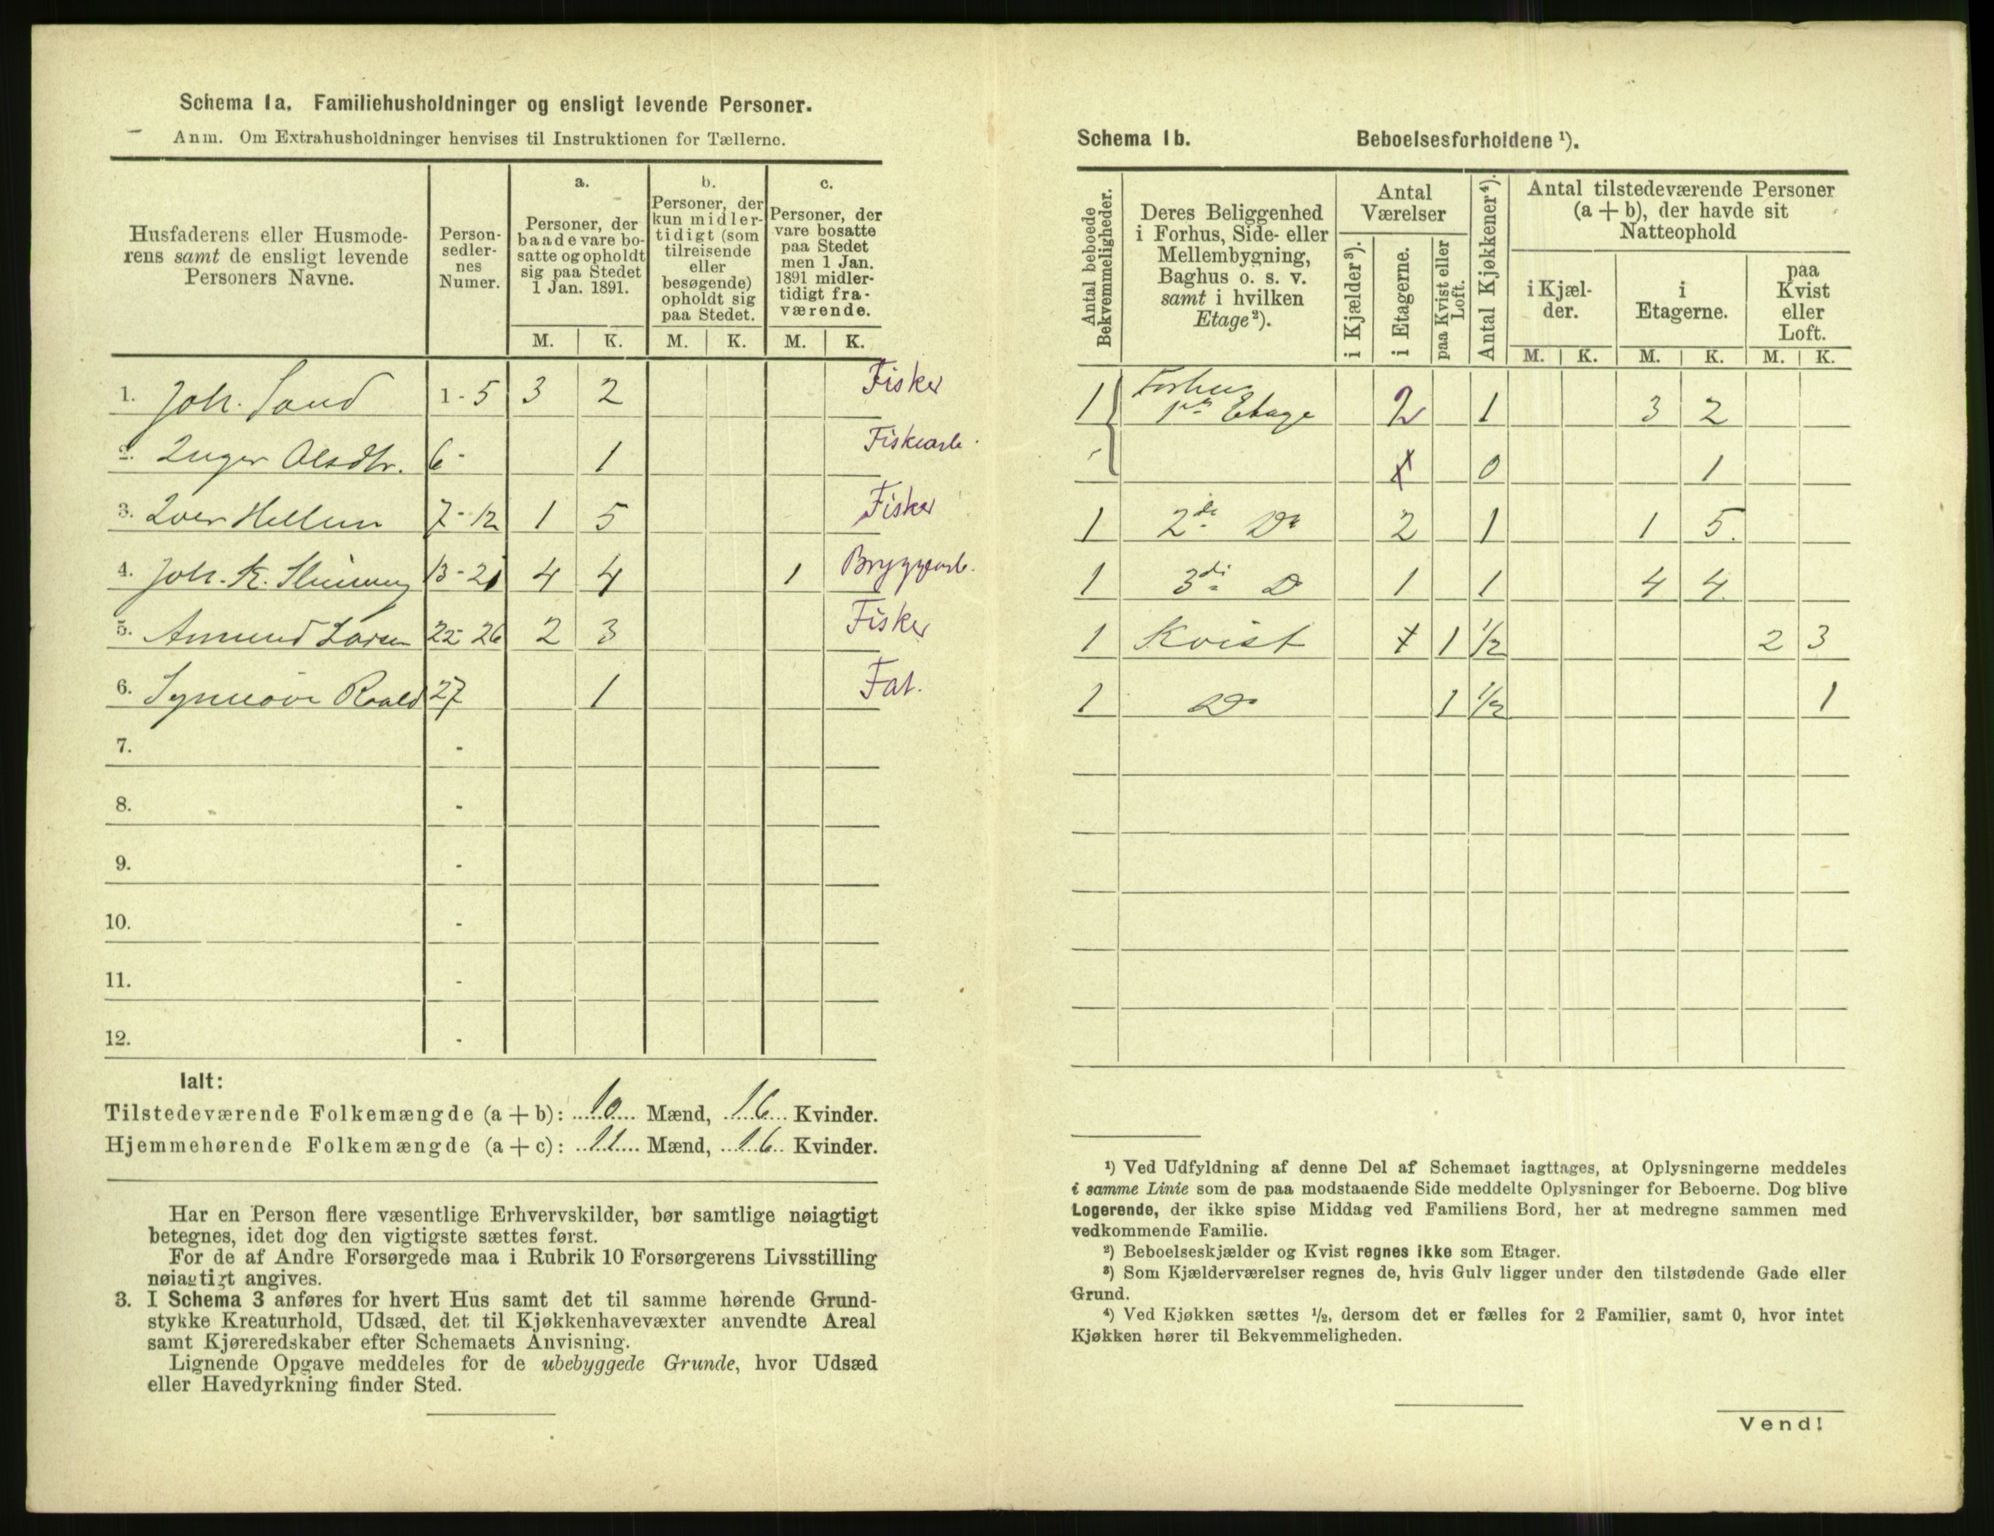 Schema 1a. Familiehusholdninger og ensligt levende Personer.
Anm. Om Extrahusholdninger henvises til Instruktionen for Tællerne.
Husfaderens eller Husmoderens samt de ensligt levende Personers Navne.
Personsedlernes Numer.
a. Personer, der baade vare bosatte og opholdt sig paa Stedet 1 Jan. 1891.
b. Personer, der kun midlertidigt (som tilreisende eller besøgende) opholdt sig paa Stedet.
c. Personer, der vare bosatte paa Stedet men 1 Jan. 1891 midlertidigt fraværende.
M. K. M. K. M. K.
1. Joh. Sand 1 - 5 3 2 Fisker
2. Inger Olsdtr. 6 - 1 Fiskearb.
3. Iver Hellem 7 - 12 1 5 Fisker
4. Joh. K. 13 - 21 4 4 1 Bryggearb.
5. Amund Larsen 22 - 26 2 3 Fisker
6. Synnøve Roald 27 1 Fat.
7. -
8. -
9. -
10. -
11. -
12. -
Ialt:
Tilstedeværende Folkemængde (a + b): 10 Mænd, 16 Kvinder.
Hjemmehørende Folkemængde (a + c): 11 Mænd, 16 Kvinder.
Har en Person flere væsentlige Erhvervskilder, bør samtlige nøiagtigt
betegnes, idet dog den vigtigste sættes først.
For de af Andre Forsørgede maa i Rubrik 10 Forsørgerens Livsstilling
nøiagtigt angives.
3. I Schema 3 anføres for hvert Hus samt det til samme hørende Grund-
stykke Kreaturhold, Udsæd, det til Kjøkkenhavevæxter anvendte Areal
samt Kjøreredskaber efter Schemaets Anvisning.
Lignende Opgave meddeles for de ubebyggede Grunde, hvor Udsæd
eller Havedyrkning finder Sted.
Schema 1b. Beboelsesforholdene ¹).
Antal beboede Bekvemmeligheder.
Deres Beliggenhed i Forhus, Side- eller Mellembygning, Baghus o. s. v. samt i hvilken Etage ²).
Antal Værelser
i Kjælder ³).
i Etagerne.
paa Kvist eller Loft.
Antal Kjøkkener ⁴).
Antal tilstedeværende Personer (a + b), der havde sit Natteophold
i Kjælder.
i Etagerne.
paa Kvist eller Loft.
M. K. M. K. M. K.
1 Forhus 1ste Etage 2 1 3 2
1 0 1
1 2den Do 2 1 1 5.
1 3die Do 1 1 4 4
1 Kvist 1 1 1/2 2 3
1 Do 1 1/2 1
¹) Ved Udfyldning af denne Del af Schemaet iagttages, at Oplysningerne meddeles
i samme Linie som de paa modstaaende Side meddelte Oplysninger for Beboerne. Dog blive
Logerende, der ikke spise Middag ved Familiens Bord, her at medregne sammen med
vedkommende Familie.
²) Beboelseskjælder og Kvist regnes ikke som Etager.
³) Som Kjælderværelser regnes de, hvis Gulv ligger under den tilstødende Gade eller
Grund.
⁴) Ved Kjøkken sættes ½, dersom det er fælles for 2 Familier, samt 0, hvor intet
Kjøkken hører til Bekvemmeligheden.
Vend!